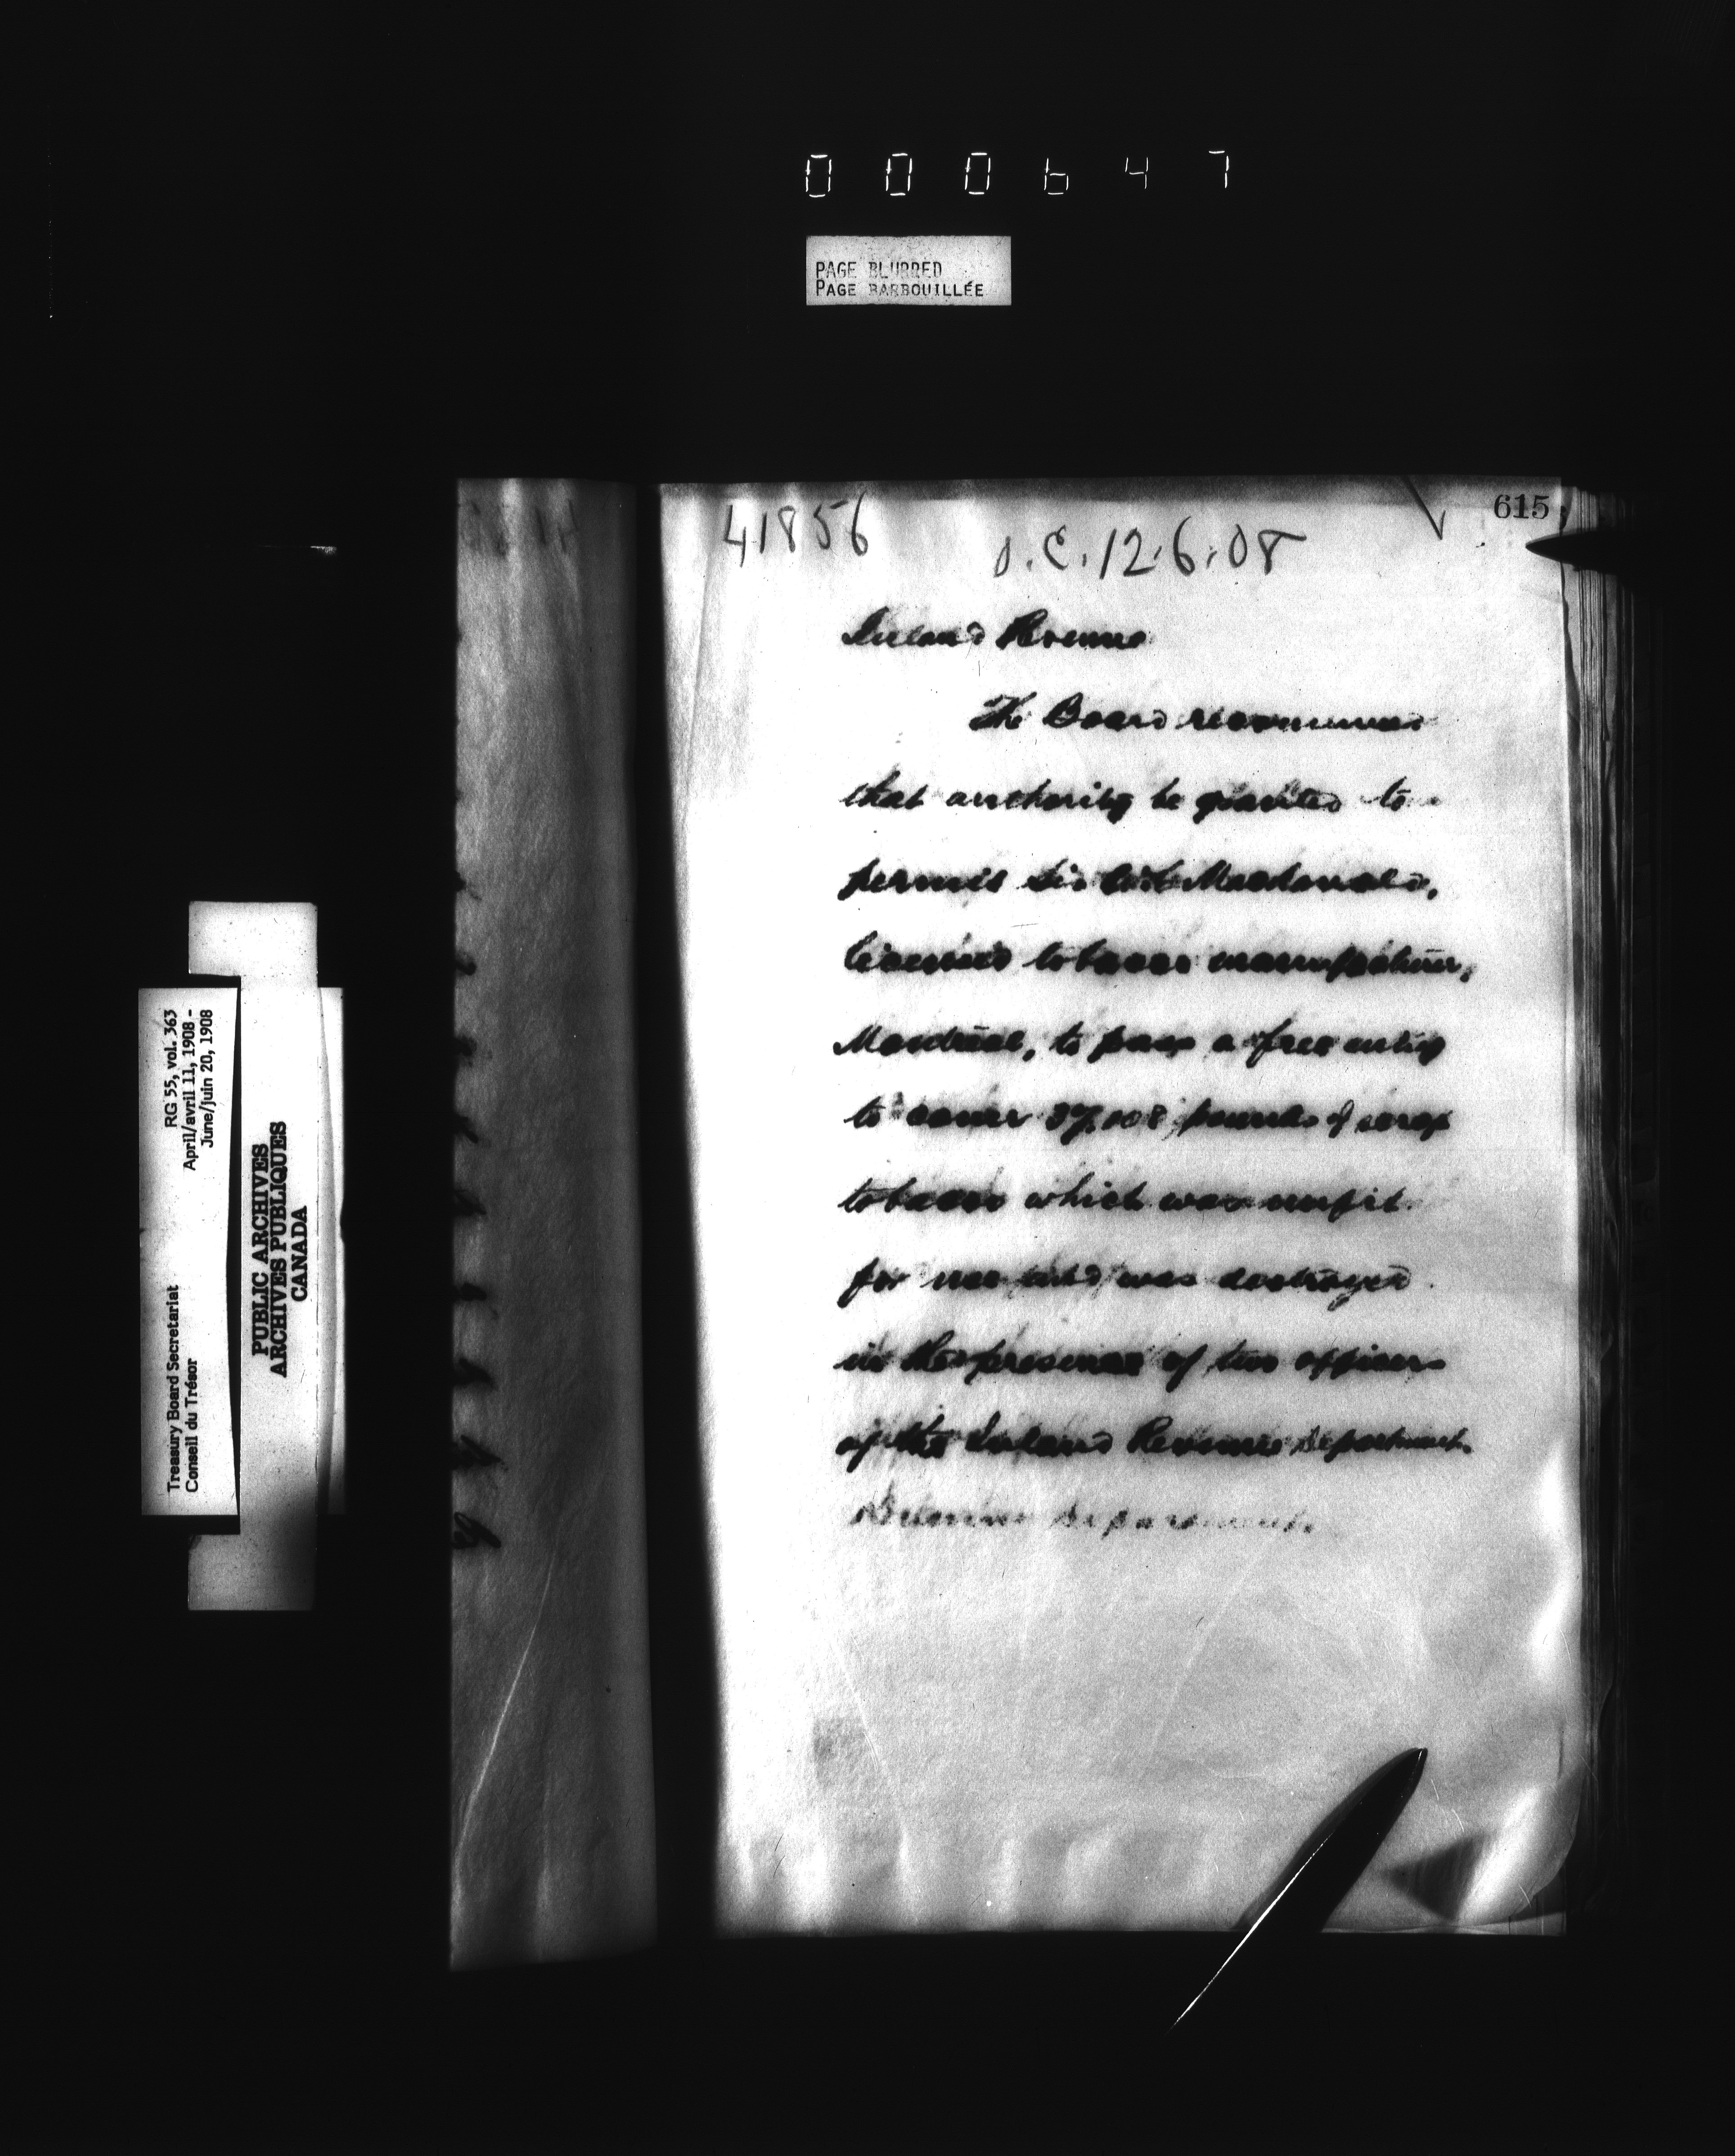 000647
PAGE BLURRED
PAGE BARBOUILLÉE
615
41856
O.C. 12.6.08
Inland Revenue
The Board recommend
that authority be granted to
permit Sir Macdonald,
licensed tobacco manufacturer,
Montreal, to pass a free entry
to cover pounds of scrap
tobacco which was unfit
for use and was destroyed
in the presence of two officers
of the Inland Revenue Department.
Revenue Department.
RG 55, vol. 363
April/avril 11, 1908 -
June/juin 20, 1908
Treasury Board Secretariat
Conseil du Trésor
PUBLIC ARCHIVES
ARCHIVES PUBLIQUES
CANADA